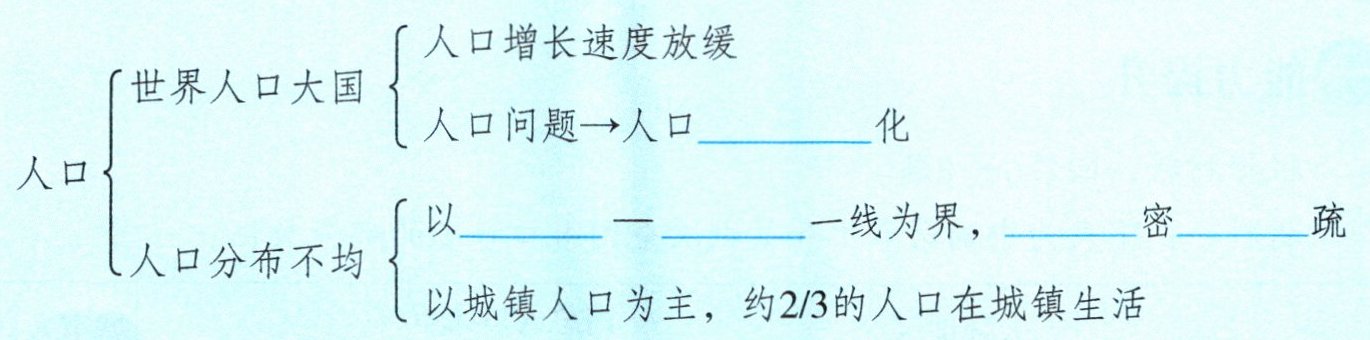 人口
世界人口大国
人口增长速度放缓
人口问题→人口________化
人口分布不均
以________—________一线为界，________密________疏
以城镇人口为主，约2/3的人口在城镇生活